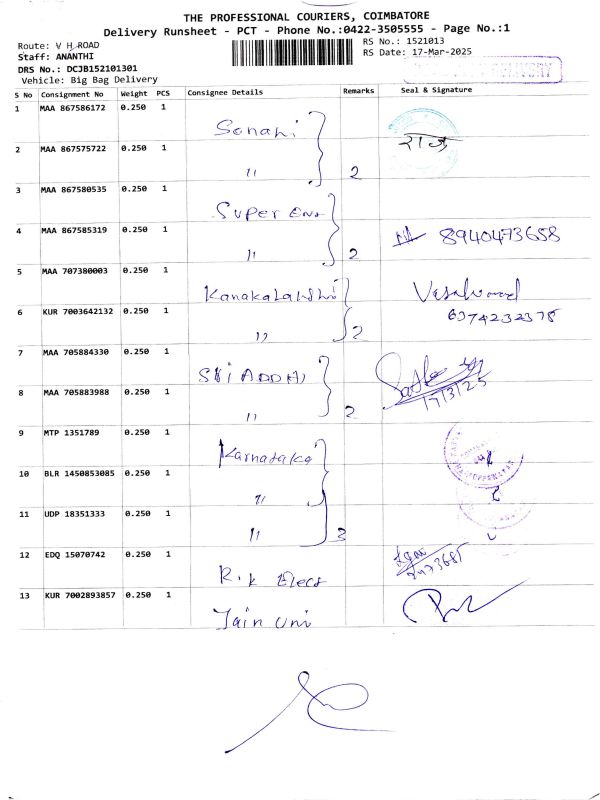 THE PROFESSIONAL COURIERS, COIMBATORE
Delivery Runsheet - PCT - Phone No.:0422-3505555 - Page No.:1
Route: V H ROAD
Staff: ANANTHI
DRS No.: DCJB152101301
Vehicle: Big Bag Delivery
RS No.: 1521013
RS Date: 17-Mar-2025
DELIVERY
S No Consignment No Weight PCS Consignee Details Remarks Seal & Signature
1 MAA 867586172 0.250 1 Sonani राज
2 MAA 867575722 0.250 1 " 2
3 MAA 867580535 0.250 1 Super Ent
4 MAA 867585319 0.250 1 " 2 8940473658
5 MAA 707380003 0.250 1 Kanakalakshi
6 KUR 7003642132 0.250 1 " 2 6374232378
7 MAA 705884330 0.250 1 SRi ADDHI
8 MAA 705883988 0.250 1 " 2 17/3/25
9 MTP 1351789 0.250 1 Karnataka
10 BLR 1450853085 0.250 1 "
11 UDP 18351333 0.250 1 " 3
12 EDQ 15070742 0.250 1 R.k Elect
13 KUR 7002893857 0.250 1 Jain Uni